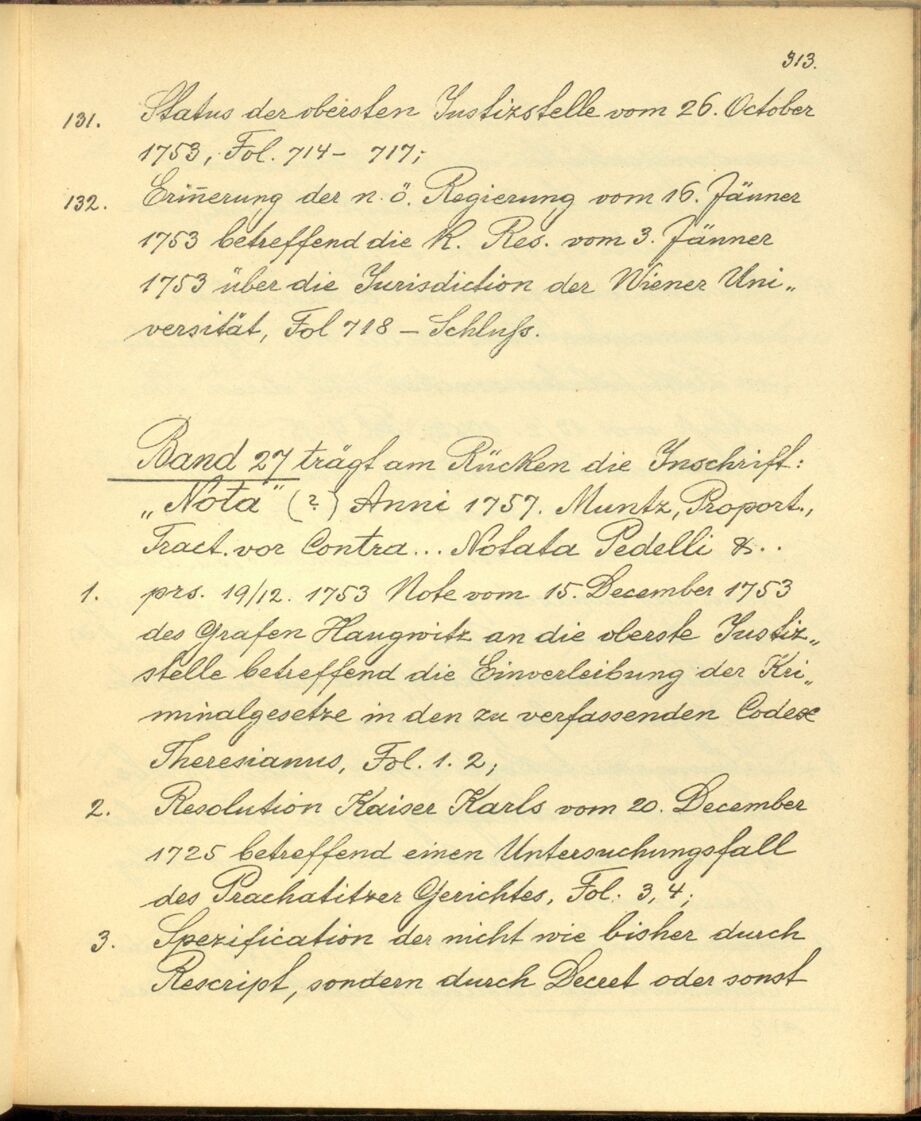 313.
131. Status der obersten Justizstelle vom 26. October
1753, Fol. 714 – 717;
132. Erin̄erung der n. ö. Regierung vom 16. Jänner
1753 betreffend die K. Res. vom 3. Jänner
1753 über die Jurisdiction der Wiener Uni„
versität, Fol 718 – Schluß.
Band 27 trägt am Rücken die Inschrift:
„Nota" (?) Anni 1757. Muntz, Proport.,
Tract. vor Contra... Notata Pedelli &..
1. prs. 19/12. 1753 Note vom 15. December 1753
des Grafen Haugwitz an die oberste Justiz„
stelle betreffend die Einverleibung der Kri„
minalgesetze in den zu verfassenden Codex
Theresianus, Fol. 1. 2;
2. Resolution Kaiser Karls vom 20. December
1725 betreffend einen Untersuchungsfall
des Prachatitzer Gerichtes, Fol. 3, 4;
3. Spezification der nicht wie bisher durch
Rescript, sondern durch Decret oder sonst